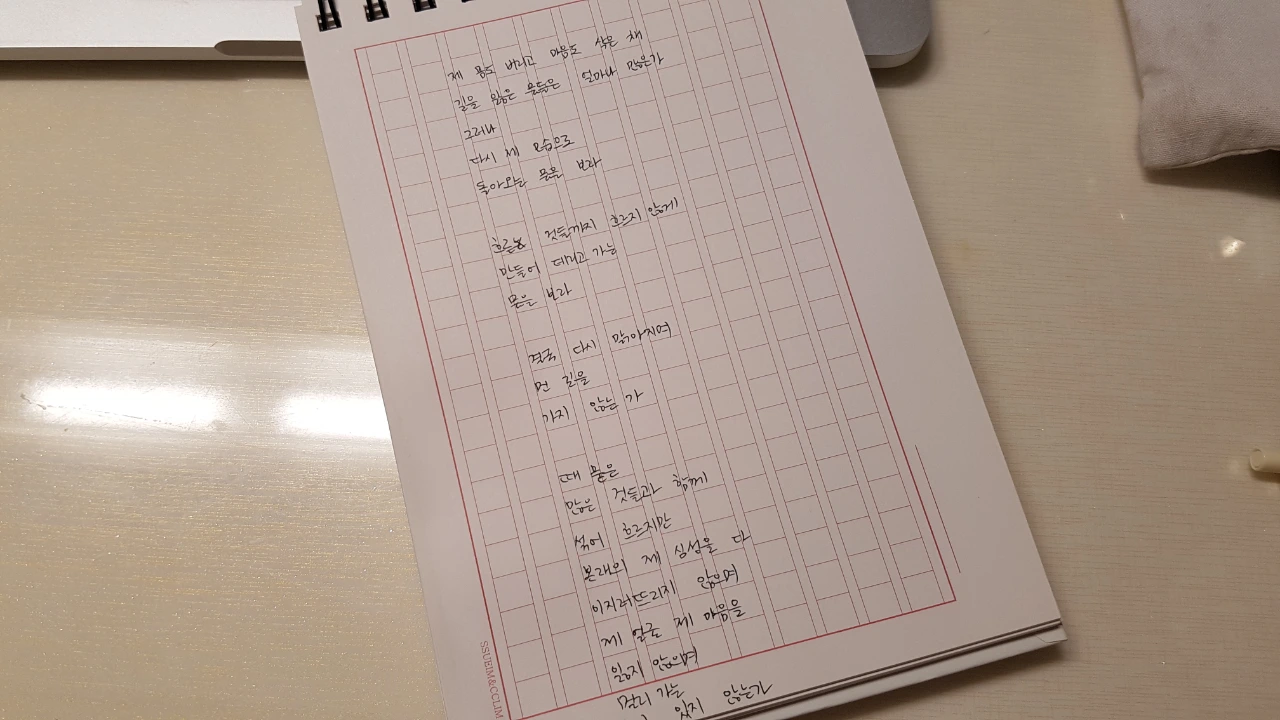 제 몸도 버리고 마음도 삭은 채
길을 잃은 물들은 얼마나 많은가
그러나
다시 제 모습으로
돌아오는 물을 보라
흐린 것들까지 흐리지 않게
만들어 데리고 가는
물을 보라
결국 다시 맑아지며
먼 길을
가지 않는가
때 묻은
많은 것들과 함께
섞여 흐르지만
본래의 제 심성을 다
이지러뜨리지 않으며
제 얼굴 제 마음을
잃지 않으며
멀리 가는
있지 않는가
SSUEIM&CCLIM